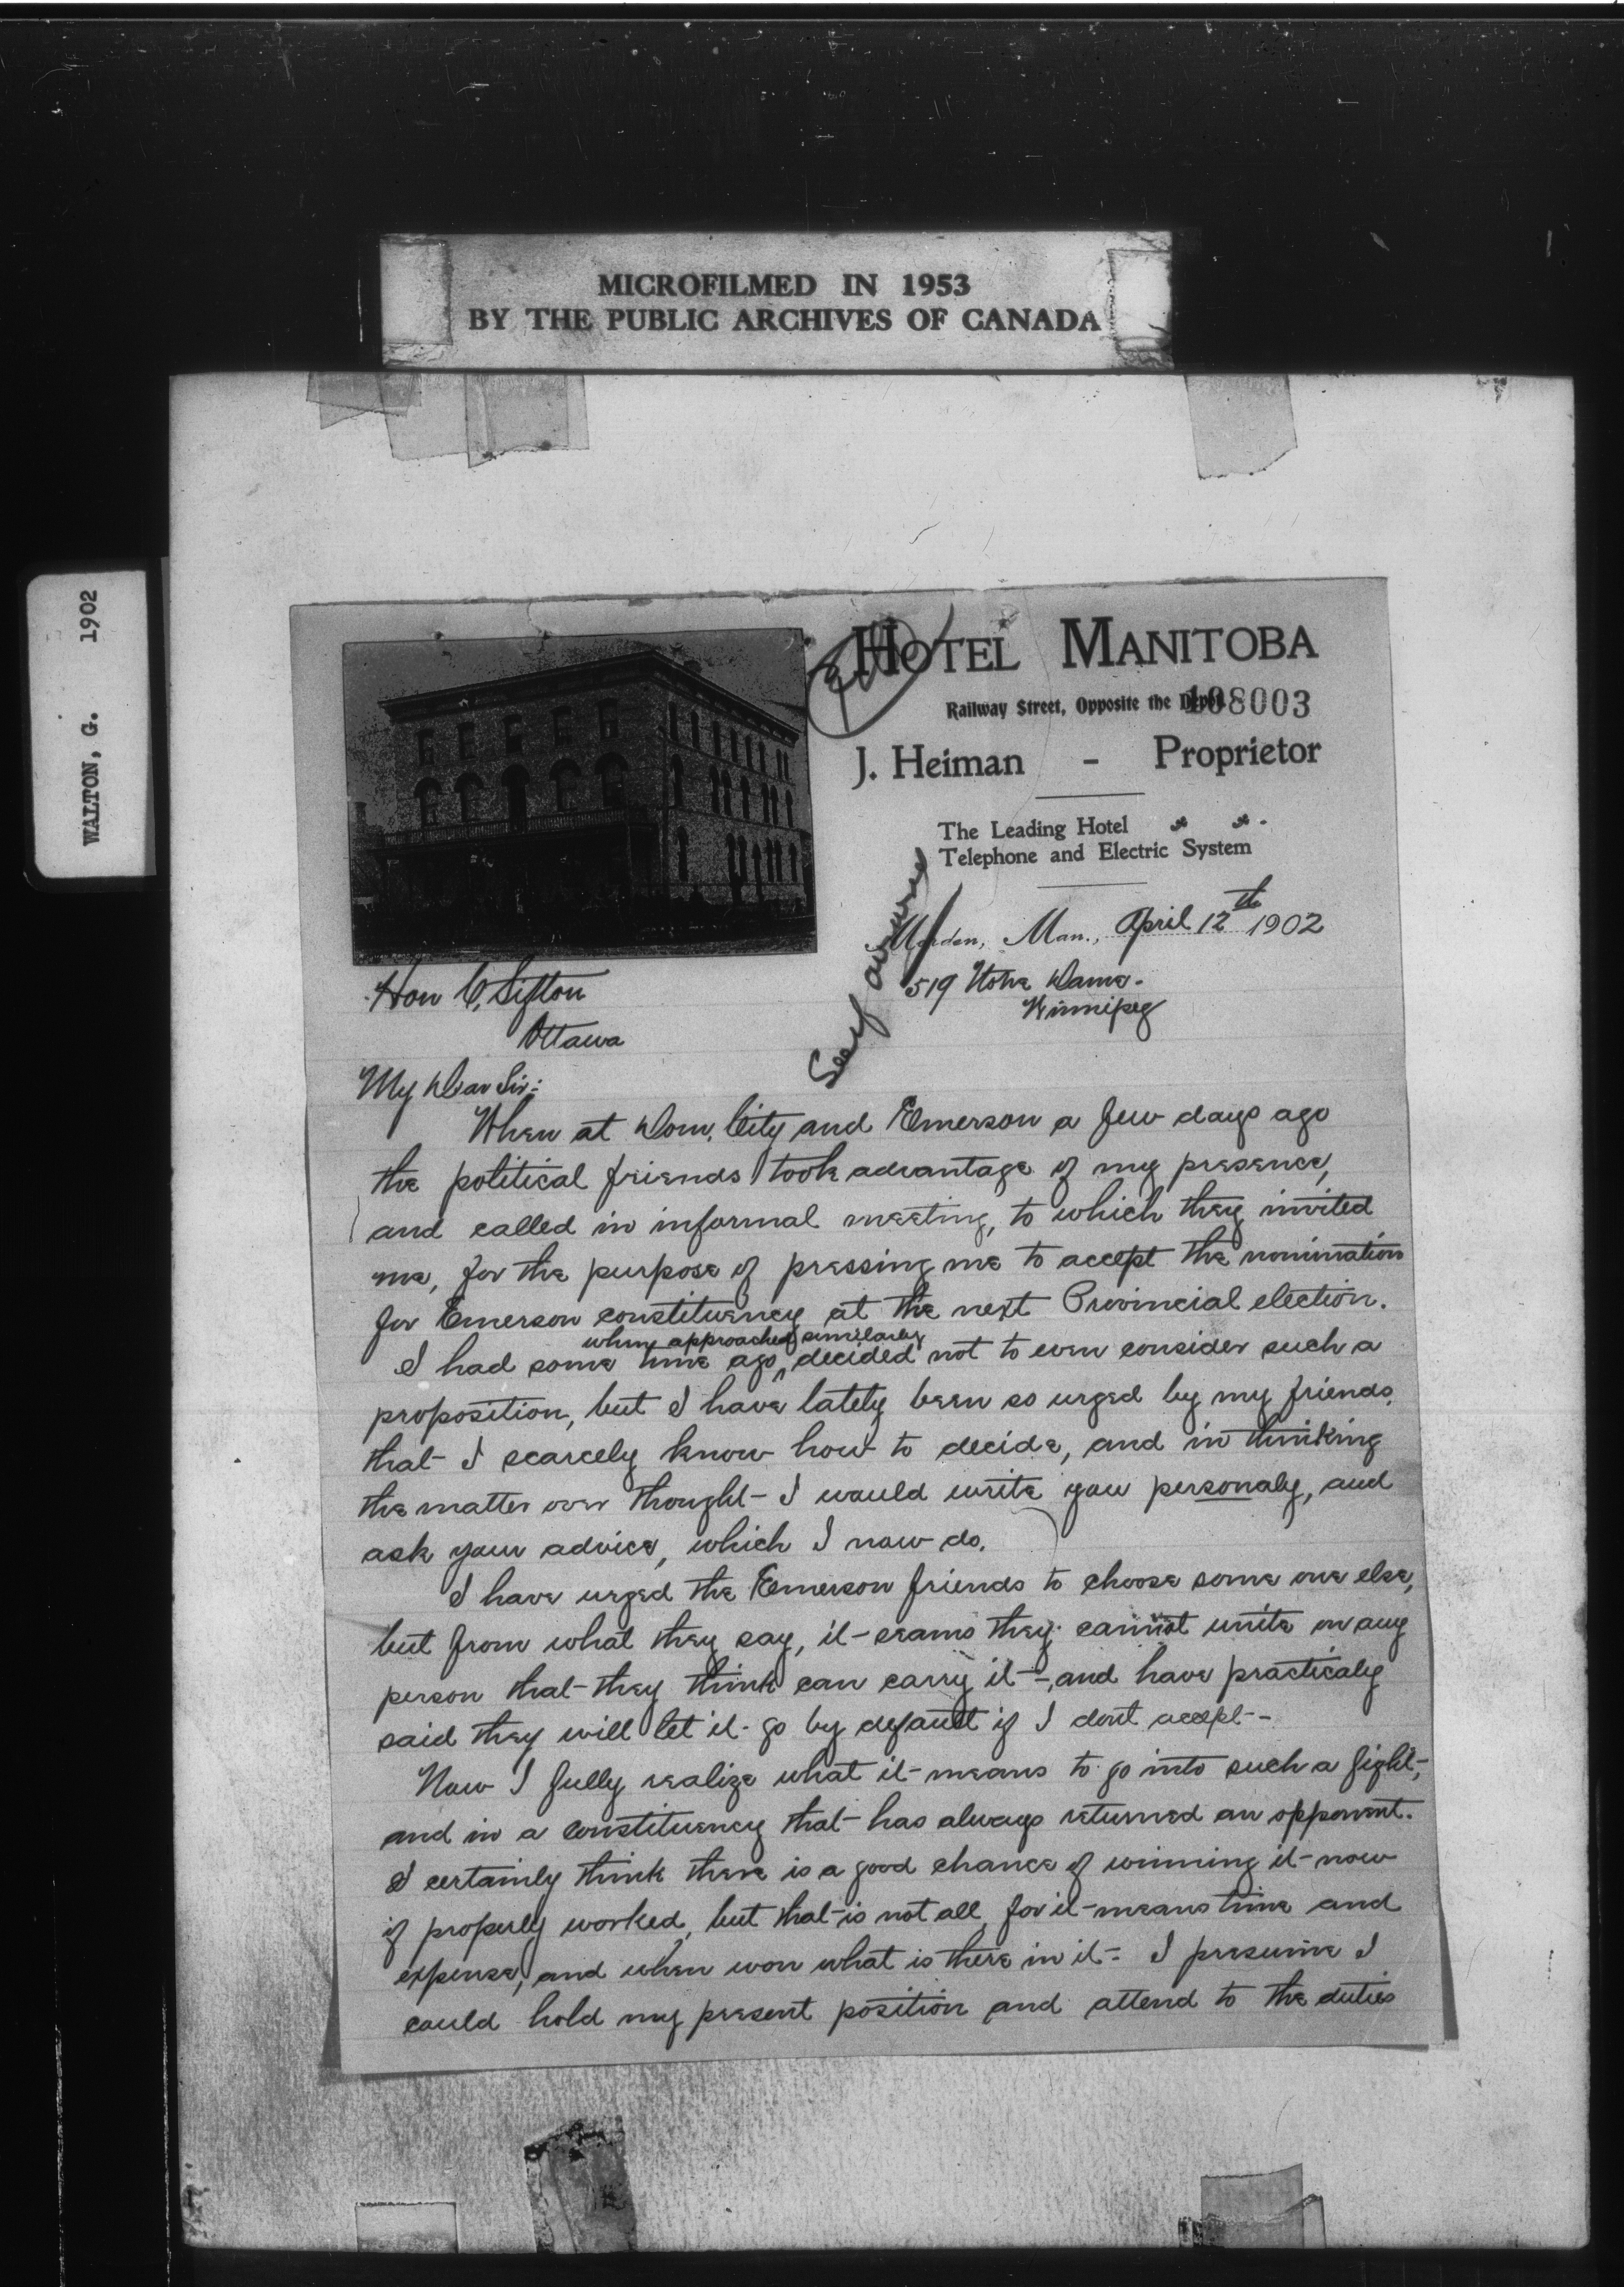 MICROFILMED IN 1953
BY THE PUBLIC ARCHIVES OF CANADA
WALTON, G. 1902
HOTEL MANITOBA
Railway Street, Opposite the Depot
108003
J. Heiman - Proprietor
The Leading Hotel
Telephone and Electric System
Morden, Man., April 12th 1902
519 Notre Dame.
Winnipeg
Hon C. Sifton
Ottawa
My Dear Sir:
When at Dom. City and Emerson a few days ago
the political friends took advantage of my presence,
and called in informal meeting, to which they invited
me, for the purpose of pressing me to accept the nomination
for Emerson constituency at the next Provincial election.
when approached similarly
I had some time ago, decided not to even consider such a
proposition, but I have lately been so urged by my friends,
that I scarcely know how to decide, and in thinking
the matter over thought I would write you personaly, and
ask your advice, which I now do.
I have urged the Emerson friends to choose some one else,
but from what they say, it seams they cannot unite on any
person that they think can carry it, and have practicaly
said they will let it go by default if I dont accept.
Now I fully realize what it means to go into such a fight,
and in a constituency that has always returned an opponent.
I certainly think there is a good chance of winning it now
if properly worked, but that is not all, for it means time and
expense, and when won what is there in it. I presume I
could hold my present position and attend to the duties